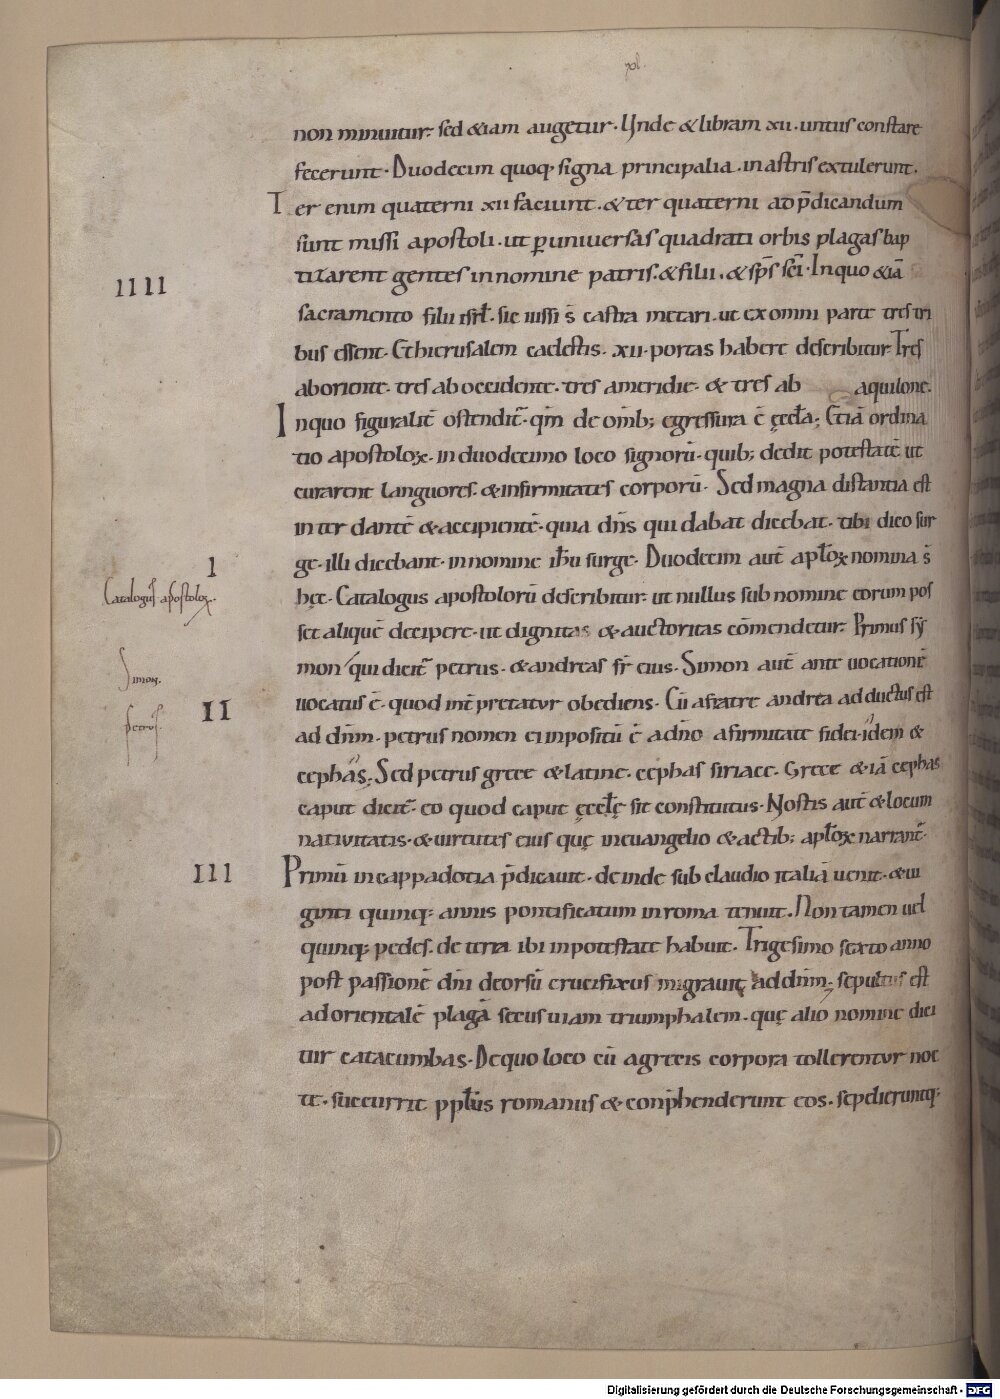 xl.
non minuitur. sed &iam augetur. Unde & libram xii. untiis constare
fecerunt. Duodecim quoq; signa principalia. in astris extulerunt.
Ter enim quaterni xii faciunt. & ter quaterni ad p̄dicandum
sunt missi apostoli. ut p̱ uniuersas quadrati orbis plagas bap
tizarent gentes in nomine patris. & filii. & sp̄s sc̄i. In quo &iā
IIII
sacramento filii isrł. sic iussi s̄ castra metari. ut ex omni parte tres tri
bus essent. Et hierusalem cęlestis. xii. portas habere describitur. Tres
ab oriente. tres ab occidente. tres a meridie. & tres ab aquilone.
In quo figuralit̄ ostendit̄. qm̄ de om̄ib; egressura ē ęccła; Etiā ordina
tio apostoloꝝ. in duodecimo loco signorū. quib; dedit potestatē ut
curarent languores. & infirmitates corporū. Sed magna distantia est
inter dantē & accipientē. quia dn̄s qui dabat dicebat. tibi dico sur
ge. illi dicebant. in nomine ih̄u surge. Duodecim aut̄ apłoꝝ nomina s̄
I
hęc. Catalogus apostolorū describitur. ut nullus sub nomine eorum pos
Catalogus apostoloꝝ.
set aliquē decipere. ut dignitas & auctoritas cōmendetur. Primus sy
mon qui dicit̄ petrus. & andreas fr̄ eius. Simon aut̄ ante uocationē
Simon.
uocatus ē. quod int̄pretatur obediens. Cū a fratre andrea adductus est
II
ad dn̄m. petrus nomen ei inpositū ē a dn̄o a firmitate fidei. idem &
petrus.
cephas; Sed petrus grece & latine. cephas siriace. Grece &iā cephas
caput dicit̄. eo quod caput ęccłę sit constitutus. Nostis aut̄ & locum
natiuitatis. & uirtutes eius quę in euangelio & actib; apłoꝝ narrant̄.
III
Primū in cappadotia p̄dicauit. deinde sub claudio italiā uenit. & ui
ginti quinq; annis pontificatum in roma tenuit. Non tamen uel
quinq; pedes. de terra ibi in potestate habuit. Trigesimo sexto anno
post passionē dn̄i deorsū crucifixus migrauit ad dn̄m. sepultus est
ad orientalē plagā secus uiam triumphalem. quę alio nomine dici
tur catacumbas. De quo loco cū a grecis corpora tollerentur noc
te. succurrit ppłus romanus & conp̄henderunt eos. sepelieruntq;
Digitalisierung gefördert durch die Deutsche Forschungsgemeinschaft - DFG